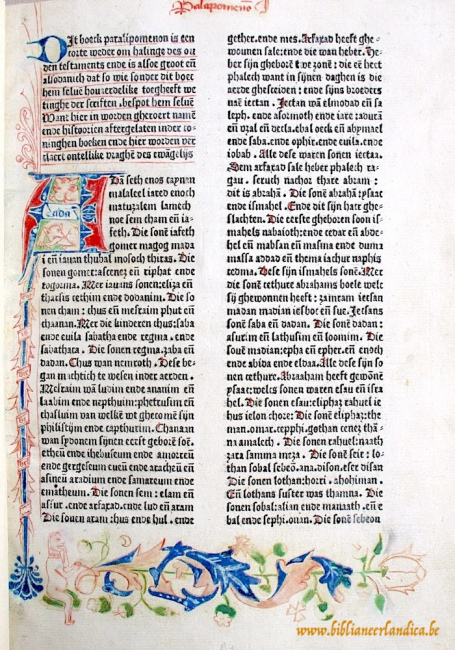 Paralipomenon I
DIt boeck paralipomenon is een
corte weder om halinge des ou
den testaments ende is alsoe groot en̄
alsodanich dat so wie sonder dit boec
hem seluē houerdelike toegheeft we
tinghe der scriften, bespot hem seluē
Want hier in worden gheroert namē
ende historien aftergelaten inder co-
ninghen boeken ende hier worden ver
claert ontellike vraghē des ewāgelijs
ADā seth enos caynan
malaleel iared enoch
matuzalem lamech
noe sem cham en̄ ia-
feth. Die sonē iafeth
gomer magog mada
i en̄ iauan thubal mosoth thiras. Die
sonen gomer: ascenez en̄ riphat ende
togorma. Mer iauans sonen: eliza en̄
tharsis cethim ende dodanim. Die so
nen cham: chus en̄ mesraim phut en̄
chanaan. Mer die kinderen chus: saba
ende euila sabatha ende regma. ende
sabathaca. Die sonen regma: zaba en̄
dadan. Chus wan nemroth. Dese be-
gan michtich te wesen inder aerden.
Mesraim wā ludim ende anamim en̄
laabim ende nepthuim: phetrusim en̄
chasluim van welkē we ghecomē sijn
philistijm ende capthurim. Chanaan
wan sydonem sijnen eerste geborē sone.
etheū ende ihebuseum ende amorreū
ende gergeseum eueū ende aracheū en̄
asineū aradium ende samareum ende
ematheum. Die sonen sem: elam en̄
assur. ende arfaxad. ende lud en̄ aram
Die sonen aram: hus ende hul. ende
gether. ende mes. Arfaxad heeft ghe-
wounen sale: ende die wan heber. He-
ber sijn gheborē twe zonē: die eē heet
phalech want in sijnen daghen is die
aerde ghesceiden: ende sijns broeders
naē iectan. Jectan wā elmodad en̄ sa
leph. ende asormoth ende iare: adurā
en̄ uzal en̄ decla. ebal oeck en̄ abymael
ende saba. ende ophir. ende euila. ende
iobab. Alle dese waren sonen iectan.
Sem arfaxad sale heber phalech ra-
gau. seruch nachor thare abram:
dit is abrahā. Die sonē abrahā: ysaac
ende ismahel. Ende dit sijn haer ghe-
slachten. Die eerste gheboren soon is-
mahels nabaioth: ende cedar en̄ abde-
hel en̄ mabsan en̄ masma ende duma
massa addad en̄ thema iachur naphis
cedma. Dese sijn ismahels sonē. Mer
die sonē cethure abrahams boele welc
sij ghewonnen heeft: zamram iecsan
madan madian iesboc en̄ sue. Jecsans
sonē saba en̄ dadan. Die sonē dadan:
assurim en̄ lathusim en̄ loomim. Die
sonē madian: epha en̄ epher. en̄ enoch
ende abida ende eldaa. Alle dese sijn so
nen cethure. Abraham heeft gewōnē
ysaac: welcs sonen waren esau en̄ isra
hel. Die sonen esau: eliphaz rahuel ie
hus ielon chore. Die sonē eliphaz: the
man. omar. sepphi. gothan cenez thā-
na amalech. Die sonen rahuel: naath
zara samma meza. Die sonē seir: lo-
than sobal sebeō. ana. dison. eser disan
Die sonen lothan: horri. ahohiman.
En̄ lothans suster was thamna. Die
sonen sobal: alian ende manaath. en̄ e
bal ende sephi. onan. Die sonē sebeon
www.biblianeerlandica.be